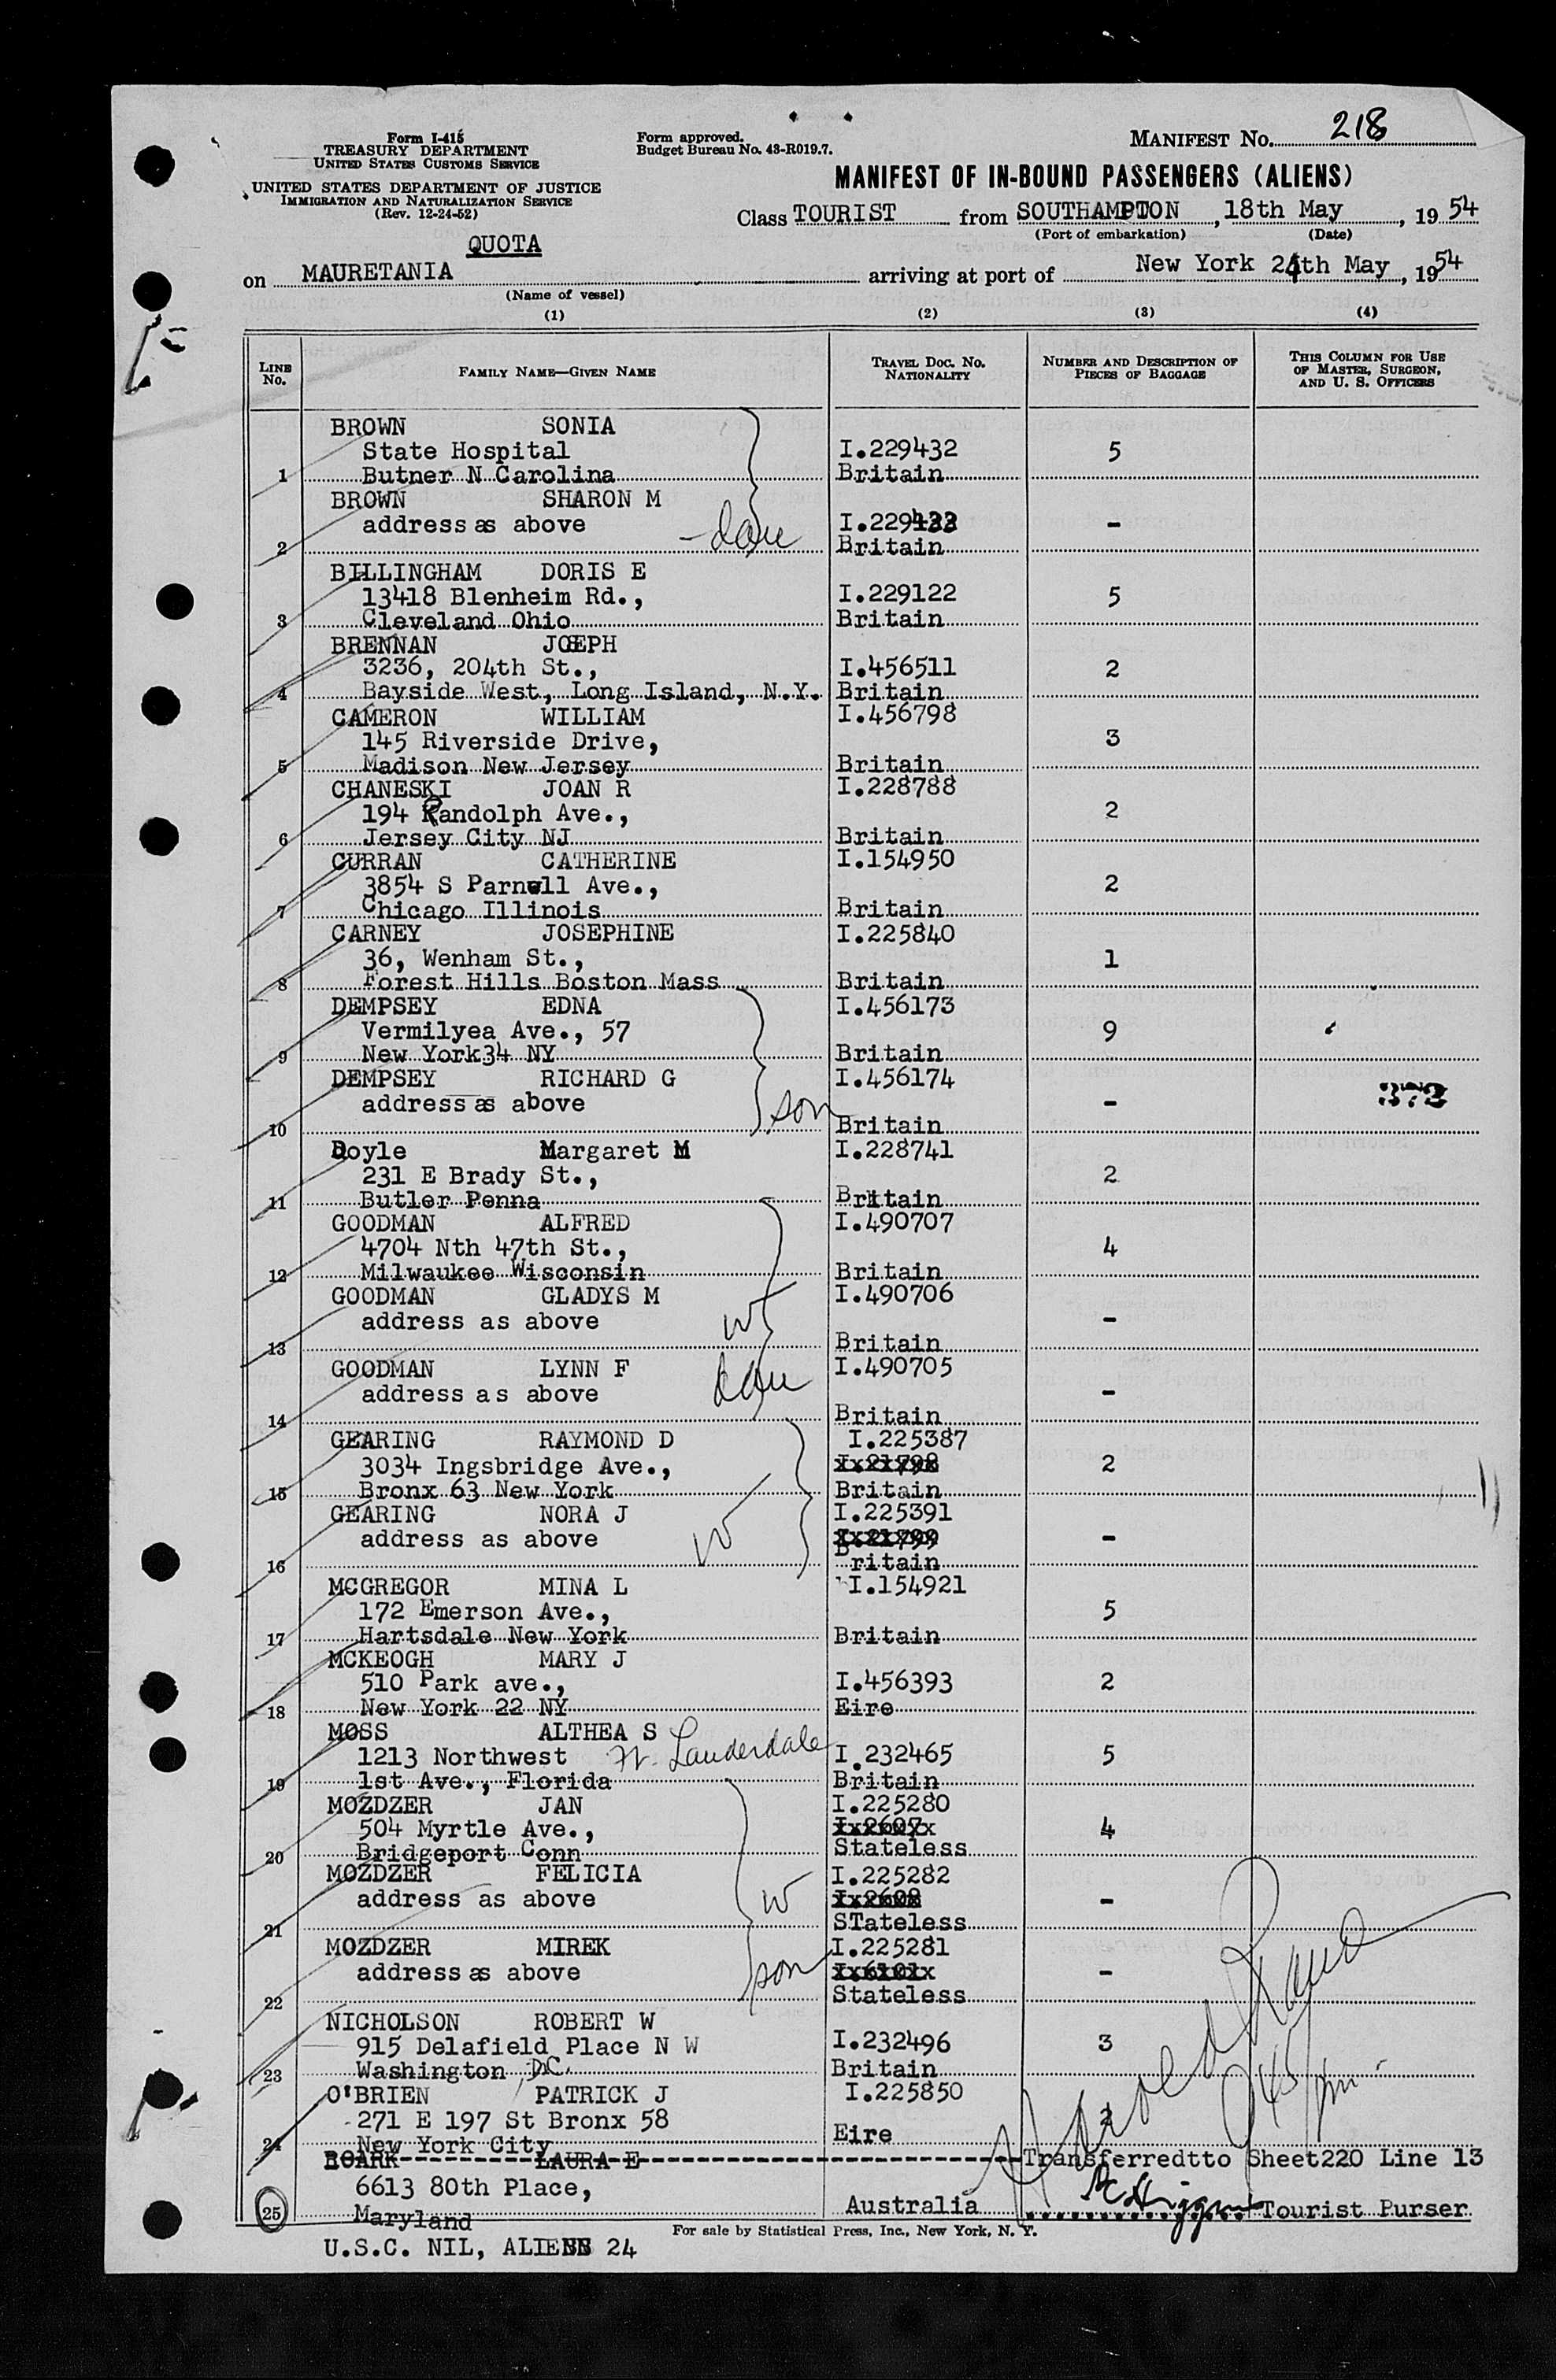 Form I-415
TREASURY DEPARTMENT
UNITED STATES CUSTOMS SERVICE
UNITED STATES DEPARTMENT OF JUSTICE
IMMIGRATION AND NATURALIZATION SERVICE
(Rev. 12-24-52)
Form approved.
Budget Bureau No. 43-R019.7.
MANIFEST No. 218
MANIFEST OF IN-BOUND PASSENGERS (ALIENS)
Class TOURIST from SOUTHAMPTON, 18th May, 19 54
(Port of embarkation) (Date)
QUOTA
on MAURETANIA arriving at port of New York 24th May, 19 54
(Name of vessel)
(1) (2) (3) (4)
LINE No. FAMILY NAME—GIVEN NAME TRAVEL DOC. NO. NATIONALITY NUMBER AND DESCRIPTION OF PIECES OF BAGGAGE THIS COLUMN FOR USE OF MASTER, SURGEON, AND U. S. OFFICERS
BROWN SONIA
State Hospital I.229432 5
1 Butner N Carolina Britain
BROWN SHARON M
address as above dau I.229433 -
2 Britain
BILLINGHAM DORIS E
13418 Blenheim Rd., I.229122 5
3 Cleveland Ohio Britain
BRENNAN JOSEPH
3236, 204th St., I.456511 2
4 Bayside West, Long Island, N.Y. Britain
CAMERON WILLIAM I.456798
145 Riverside Drive, 3
5 Madison New Jersey Britain
CHANESKI JOAN R I.228788
194 Randolph Ave., 2
6 Jersey City NJ Britain
CURRAN CATHERINE I.154950
3854 S Parnell Ave., 2
7 Chicago Illinois Britain
CARNEY JOSEPHINE I.225840
36, Wenham St., 1
8 Forest Hills Boston Mass Britain
DEMPSEY EDNA I.456173
Vermilyea Ave., 57 9
9 New York34 NY Britain
DEMPSEY RICHARD G I.456174
address as above son - 372
10 Britain
Doyle Margaret M I.228741
231 E Brady St., 2
11 Butler Penna Britain
GOODMAN ALFRED I.490707
4704 Nth 47th St., 4
12 Milwaukee Wisconsin Britain
GOODMAN GLADYS M I.490706
address as above W -
13 Britain
GOODMAN LYNN F I.490705
address as above dau -
14 Britain
GEARING RAYMOND D I.225387
3034 Ingsbridge Ave., I.21798 2
15 Bronx 63 New York Britain
GEARING NORA J I.225391
address as above W I.21799 -
16 Britain
MCGREGOR MINA L I.154921
172 Emerson Ave., 5
17 Hartsdale New York Britain
MCKEOGH MARY J
510 Park ave., I.456393 2
18 New York 22 NY Eire
MOSS ALTHEA S
1213 Northwest Ft. Lauderdale I.232465 5
19 1st Ave., Florida Britain
MOZDZER JAN I.225280
504 Myrtle Ave., 4
20 Bridgeport Conn Stateless
MOZDZER FELICIA I.225282
address as above W I.2608 -
21 STateless
MOZDZER MIREK I.225281
address as above son -
22 Stateless
NICHOLSON ROBERT W
915 Delafield Place N W I.232496 3
23 Washington, DC. Britain
O'BRIEN PATRICK J I.225850
271 E 197 St Bronx 58 2
24 New York City Eire
ROARK LAURA E Transferredtto Sheet220 Line 13
6613 80th Place,
25 Maryland Australia Tourist Purser
For sale by Statistical Press, Inc., New York, N. Y.
U.S.C. NIL, ALIENS 24